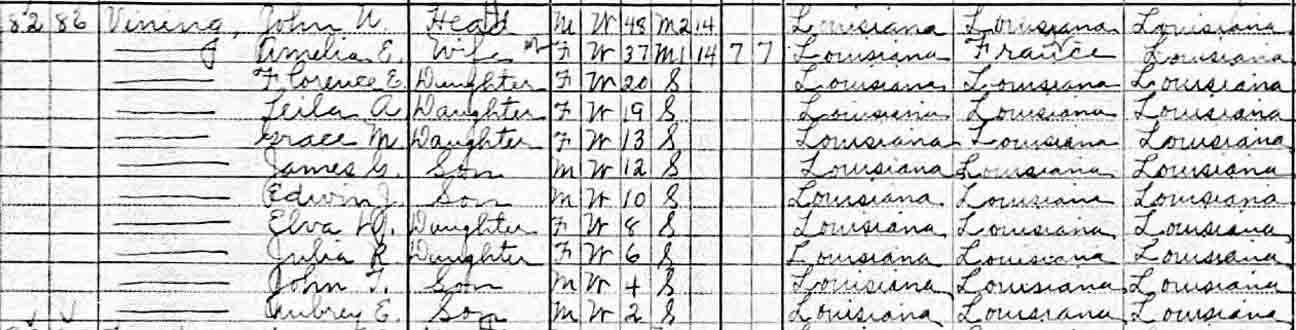 82 86 Vining, John W. Head M W 48 M2 14 Louisiana Louisiana Louisiana
Amelia E. Wife F W 37 M1 14 7 7 Louisiana France Louisiana
Florence E. Daughter F W 20 S Louisiana Louisiana Louisiana
Leila A Daughter F W 19 S Louisiana Louisiana Louisiana
Grace M. Daughter F W 13 S Louisiana Louisiana Louisiana
James G. Son M W 12 S Louisiana Louisiana Louisiana
Edwin J. Son M W 10 S Louisiana Louisiana Louisiana
Elva Daughter F W 8 S Louisiana Louisiana Louisiana
Julia R. Daughter F W 6 S Louisiana Louisiana Louisiana
John T. Son M W 4 S Louisiana Louisiana Louisiana
Aubrey E. Son M W 2 S Louisiana Louisiana Louisiana